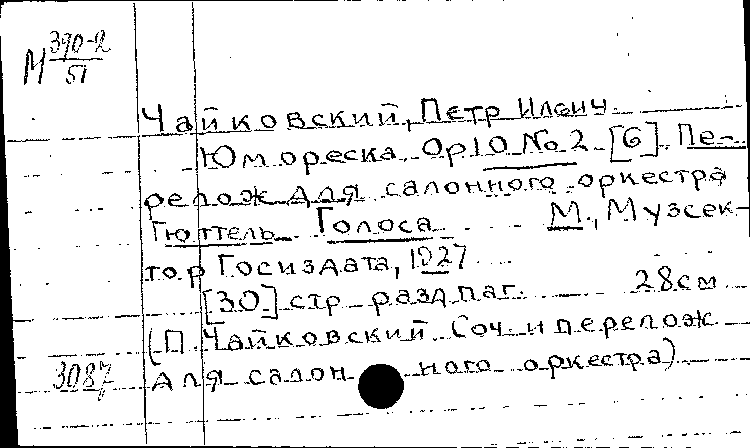 М 390-2
51
Чайковский, Петр Ильич.
Юмореска Op 10 No 2 [6]. Пе-
релож для салонного оркестра
Гюттель Голоса М., Музсек-
тор Госиздата, 1927
[30] стр разд паг. 28 см
(П. Чайковский Соч. и перелож
3087 для салонного оркестра)